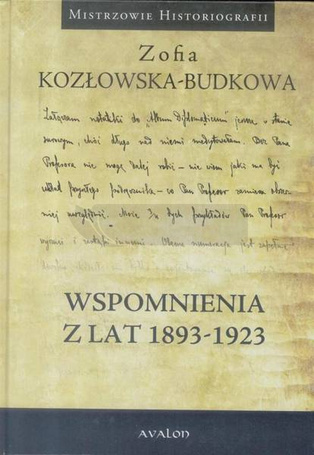 Mistrzowie Historiografii
Zofia
Kozłowska-Budkowa
Załączam notatki do „Album Dyplomaticum" jeszcze w stanie
surowym, choć długo nad niemi medytowałam. Bez Pana
Profesora nie mogę dalej robić – nie wiem jaki ma być
układ przyszłego podręcznika – co Pan Profesor zamierza
Może z tych przykładów Pan Profesor
i
jest
WSPOMNIENIA
Z LAT 1893-1923
AVALON